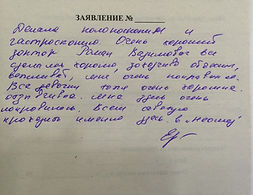 ЗАЯВЛЕНИЕ №
Делала колоноскопию и
гастроскопию. Очень хороший
доктор Роман Вадимович все
сделал хорошо, доходчиво объяснил,
мне очень понравилось.
Все девочки тоже очень хорошие
мне здесь очень
понравилось. Всем советую
проходить именно здесь в